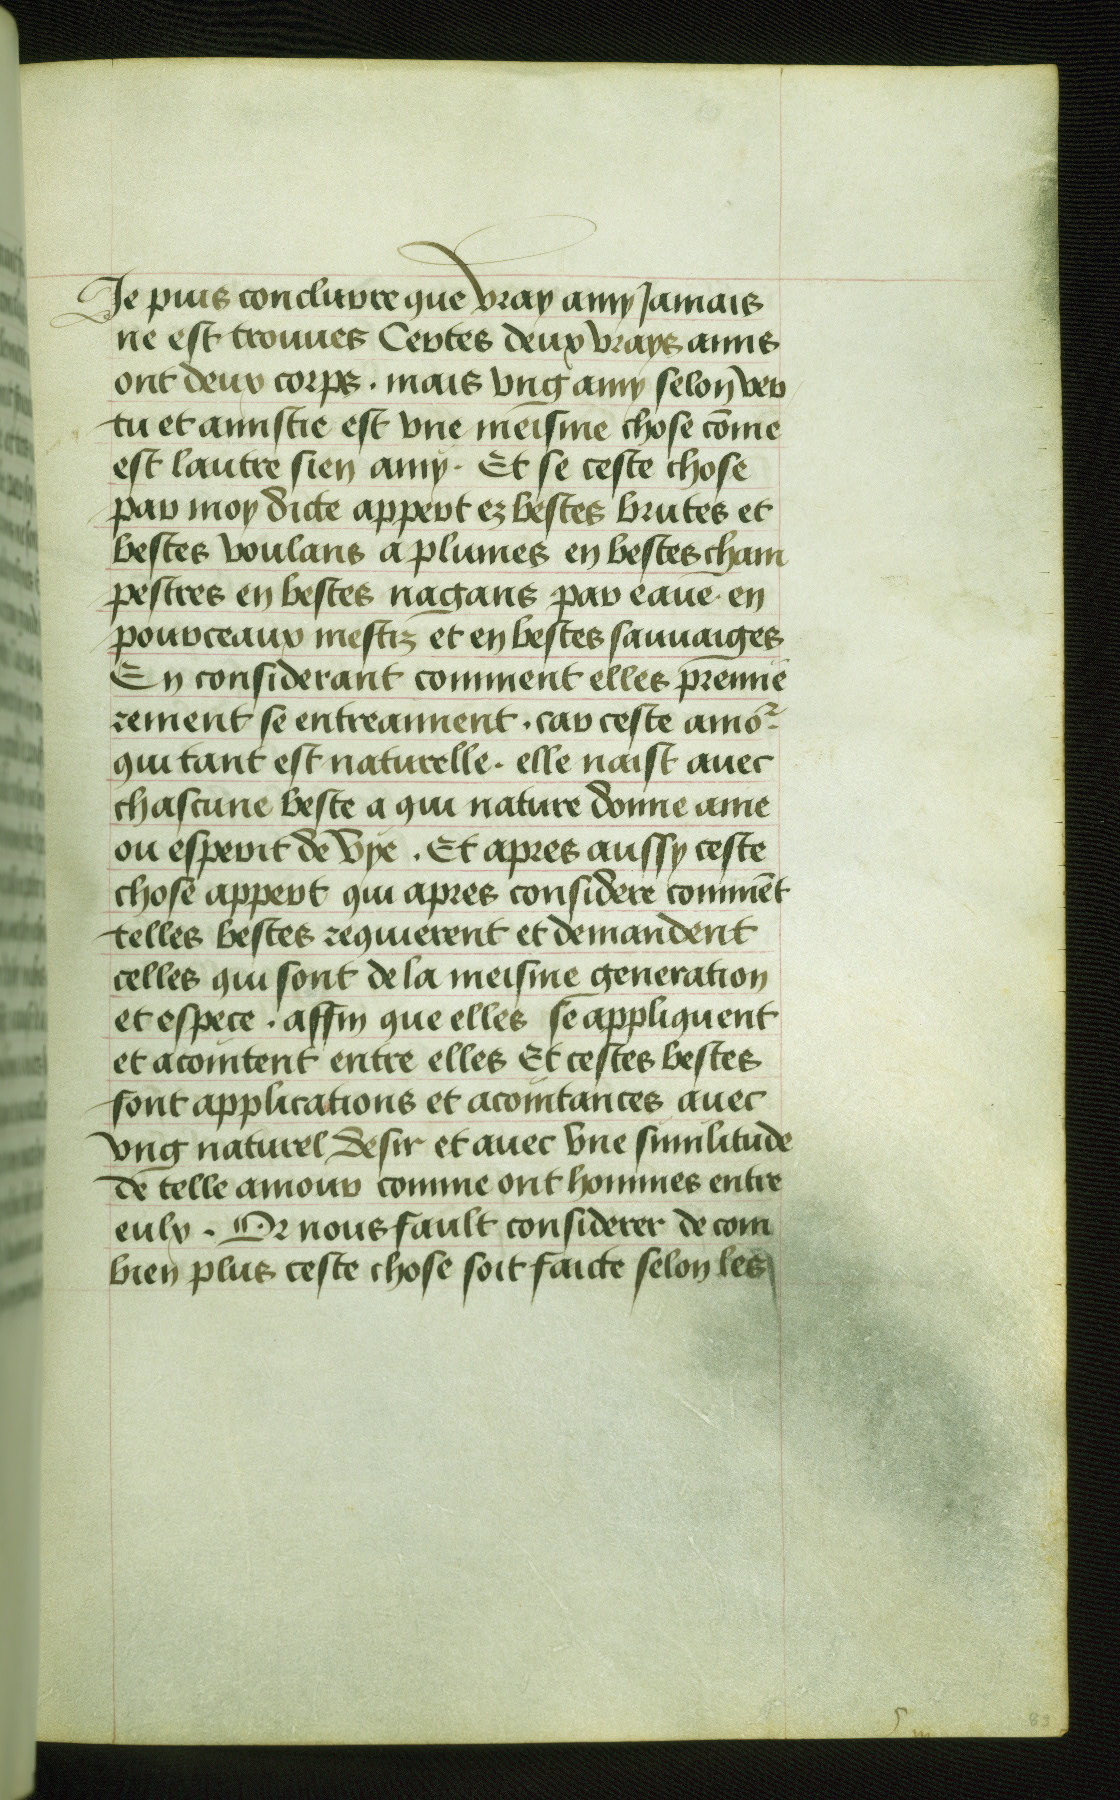 Je puis concluvre que vray amy Jamais
ne est trouues Certes deux vrays amis
ont deux corps . mais vng amy selon ver
tu et amistie est vne meisme chose cōme
est lautre sien amy . Et se ceste chose
par moy dicte appert ez bestes brutes et
bestes voulans a plumes en bestes cham
pestres en bestes nagans par eaue en
pourceaux mestiz et en bestes sauuaiges
En considerant comment elles premie
rement se entreaiment . car ceste amoʳ
qui tant est naturelle . elle naist auec
chascune beste a qui nature donne ame
ou esperit de vye . Et apres aussy ceste
chose appert qui apres considere commēt
telles bestes requierent et demandent
celles qui sont de la meisme generation
et espece . affin que elles se appliquent
et acointent entre elles Et cestes bestes
font applications et acointances auec
vng naturel desir et auec vne similitude
de telle amour comme ont hommes entre
eulx . Or nous fault considerer de com
bien plus ceste chose soit faicte selon les
83